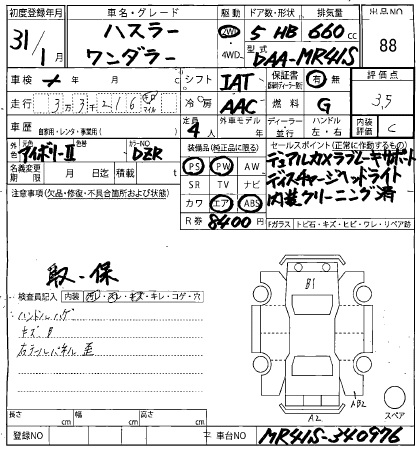 初度登録年月 車名・グレード 駆動 ドア数・形状 排気量 出品NO
31年1月 ハスラー ワンダラー 2WD ・4WD 5 HB 660cc 88
型式 DAA-MR41S
車検 年 月 シフト IAT 保証書 有 無 評価点
走行 33216 km マイル 冷房 AAC 燃料 G 3.5
車歴 自家用・レンタ・事業用( ) 定員 4人 外車モデル年 ディーラー・並行 ハンドル 左・右 内装評価 C
外色 元色 アイボリーⅡ 色替 カラーNO DZR
装備品(純正品に限る) セールスポイント(正常に作動するもの)
PS PW AW デュアルカメラブレーキサポート
名義変更期限 月 日迄 積載 t SR TV ナビ ディスチャージヘッドライト
注意事項(欠品・修復・不具合箇所および状態) カワ エア ABS 内装クリーニング済
R券 8400円 Fガラス トビ石・キズ・ヒビ・ワレ・リペア跡
取・保
B1
検査員記入 内装 汚レ・スレ・キズ・キレ・コゲ・穴
ハンドルハゲ
キズB
右テールパネル歪
AB2
A2
スペア
長さ cm 幅 cm 高さ cm
登録NO 車台NO MR41S-340976